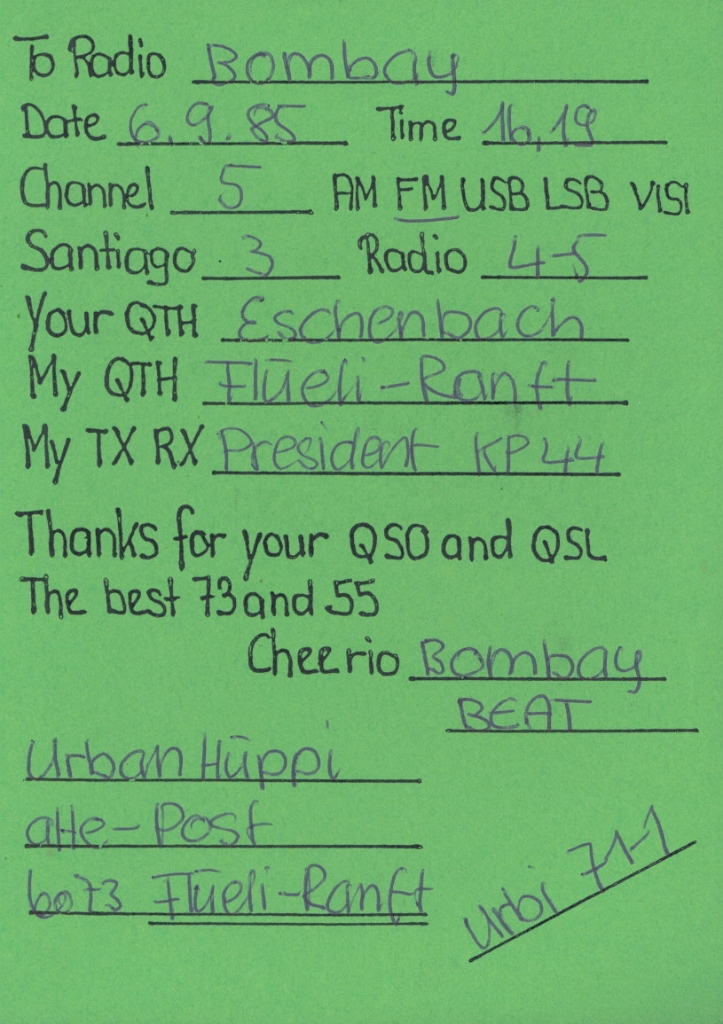 To Radio Bombay
Date 6.9.85 Time 16,19
Channel 5 AM FM USB LSB VISI
Santiago 3 Radio 4-5
Your QTH Eschenbach
My QTH Flüeli-Ranft
My TX RX President KP44
Thanks for your QSO and QSL
The best 73 and 55
Cheerio Bombay
BEAT
Urban Hüppi
alte-Post
6073 Flüeli-Ranft
Urbi 71-1